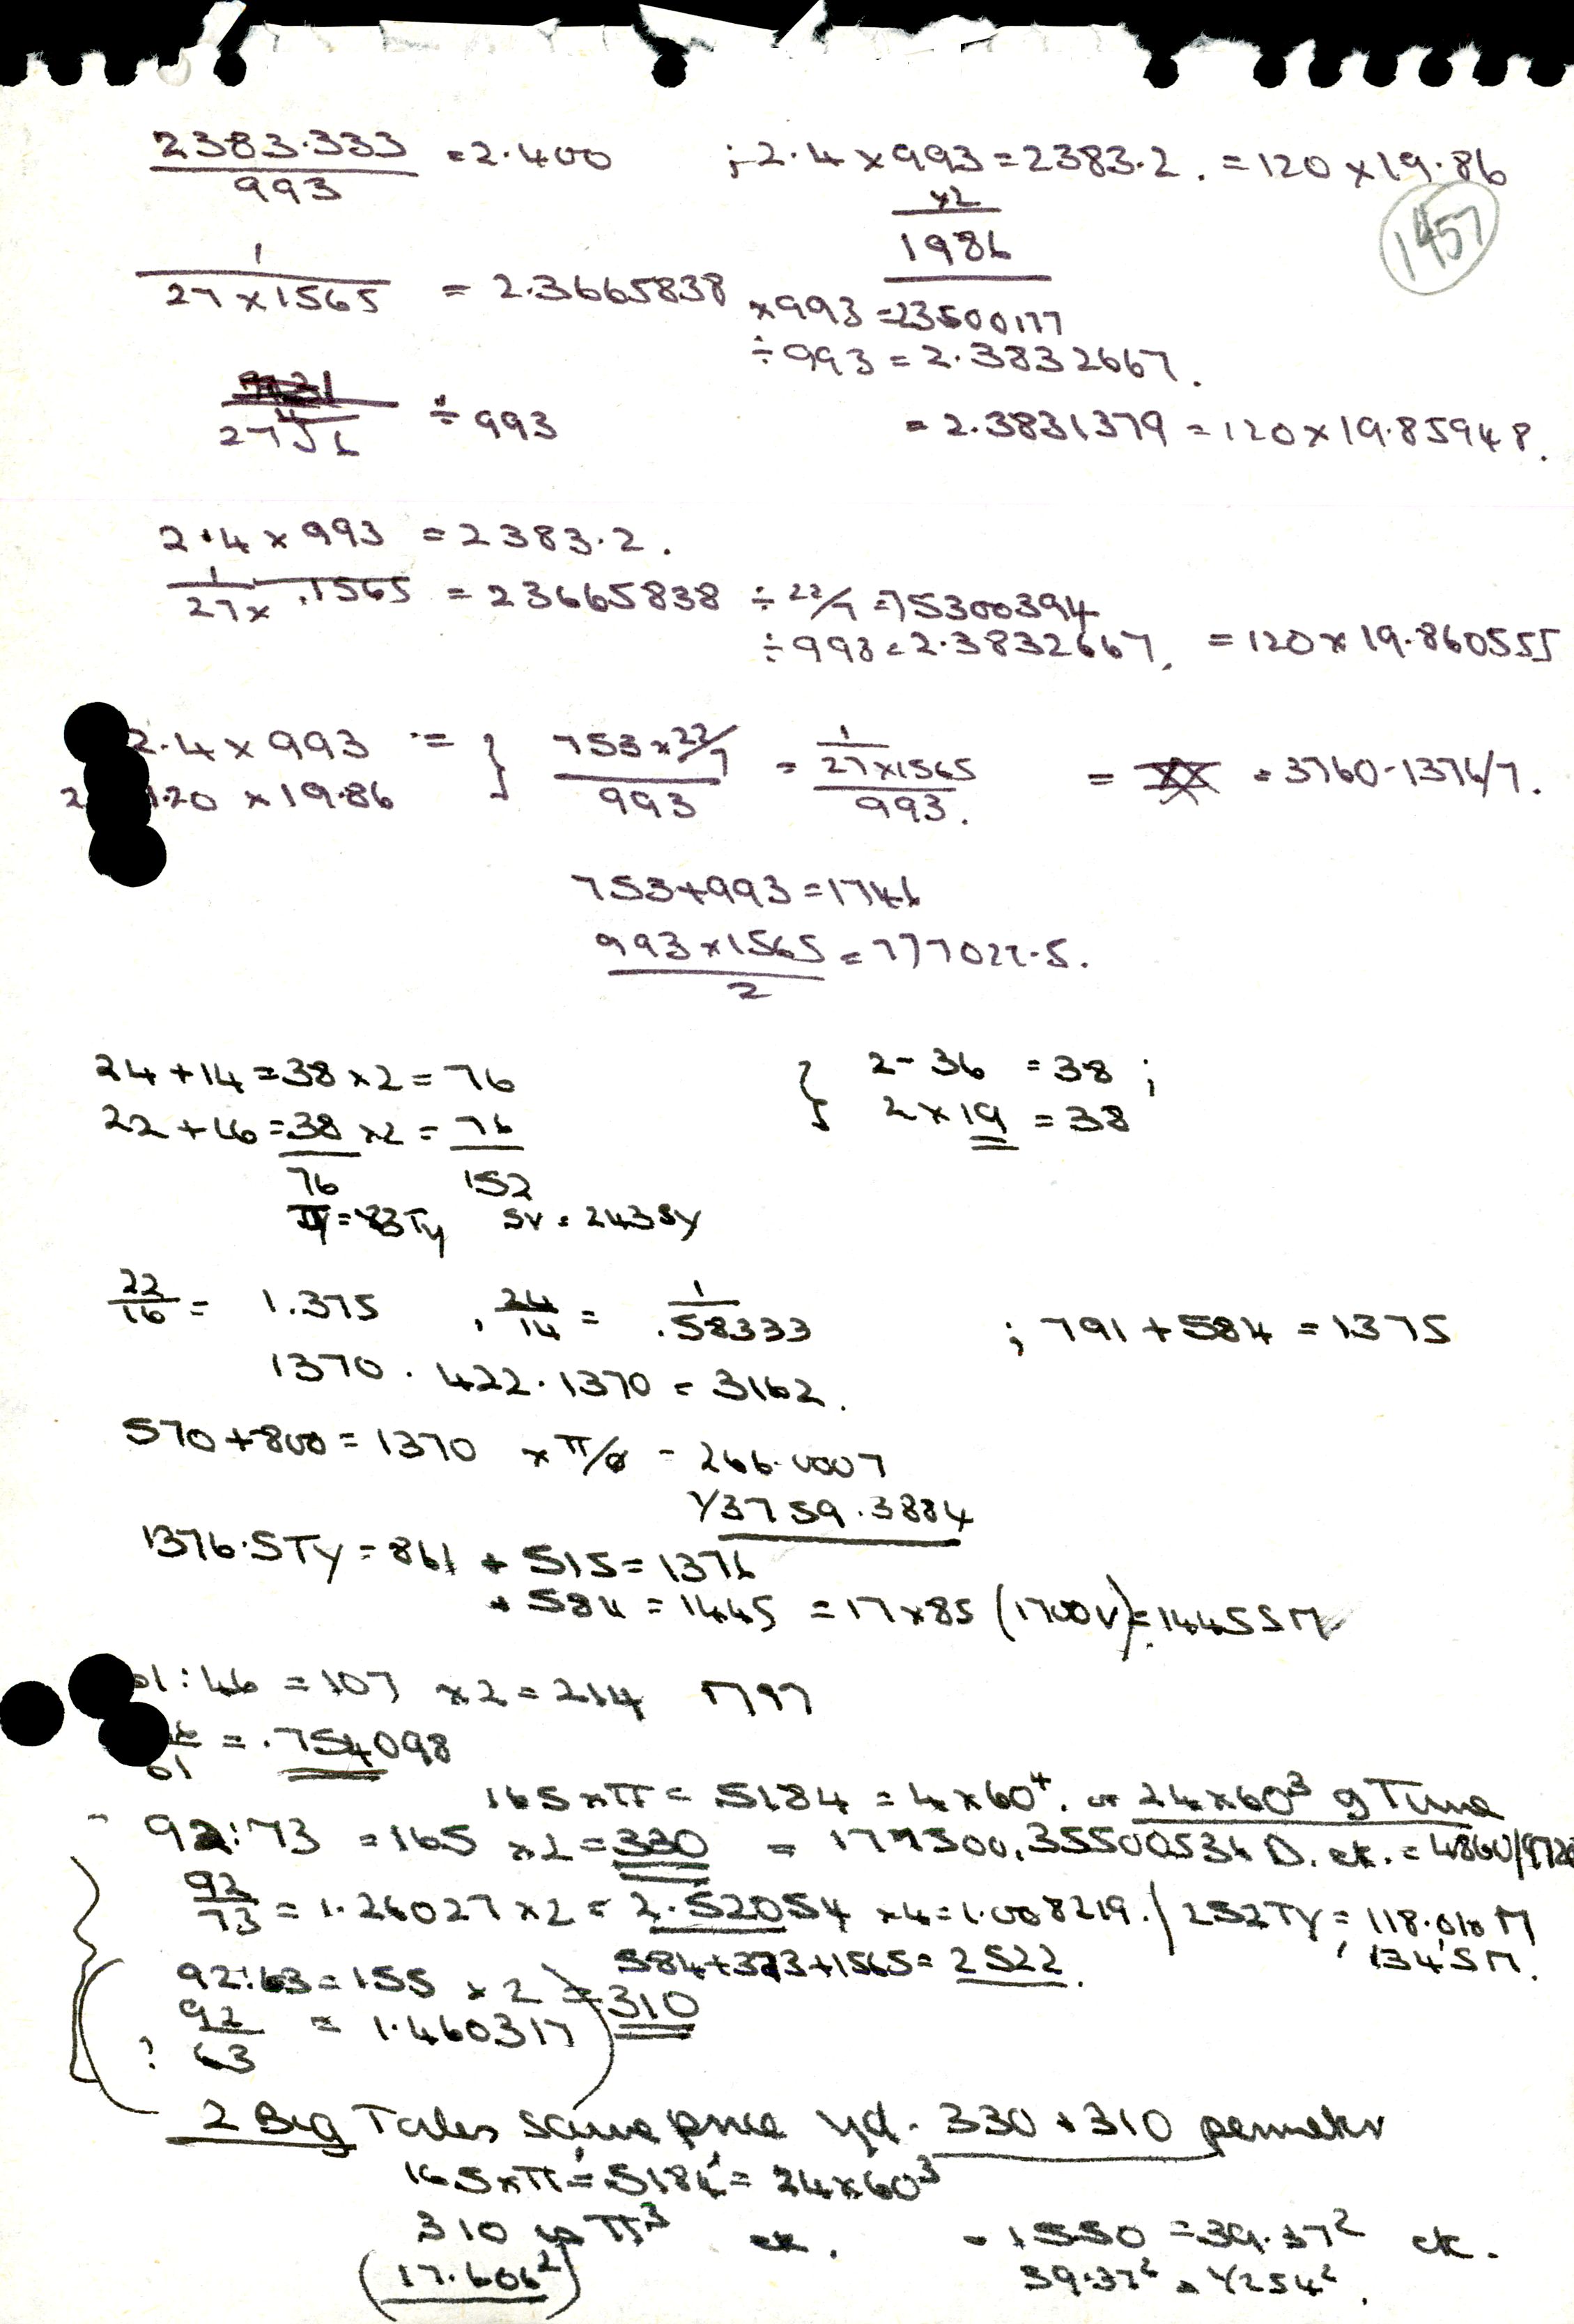 2383.333 / 993 = 2.400 ; 2.4 x 993 = 2383.2. = 120 x 19.86
x2
1986
1457
1 / 27 x 1565 = 2.3665838 x 993 = 23500177
÷ 993 = 2.3832667.
27 ÷ 993 = 2.3831379 = 120 x 19.85948.
2.4 x 993 = 2383.2.
1 / 27 x .1565 = 23665838 ÷ 22/7 = 75300394
÷ 993 = 2.3832667. = 120 x 19.860555
2.4 x 993 = } 753 x 22/7 / 993 = 1 / 27 x 1565 / 993. = = 3760 - 1376/7.
120 x 19.86
753 + 993 = 1746
993 x 1565 / 2 = 777022.5.
24 + 14 = 38 x 2 = 76 } 2 - 36 = 38 ;
22 + 16 = 38 x 2 = 76 2 x 19 = 38
76 152
SV = 243 SY
22/16 = 1.375 , 24/14 = 1 / .58333 ; 791 + 584 = 1375
1370 . 422 . 1370 = 3162.
570 + 800 = 1370 x π/6 = 266.0007
Y3759.3884
1376.5TY = 861 + 515 = 1376
+ 584 = 1445 = 17 x 85 (1700V) = 1445 SM
61 : 46 = 107 x 2 = 214 M97
46/61 = .754098
165 x π = 5184 = 4 x 60⁴. or 24 x 60³ g Time
92 : 73 = 165 x 2 = 330
92/73 = 1.26027 x 2 = 2.52054 x 4 = 1.008219. / 252TY = 118.010 M
, 134 SM.
584 + 373 + 1565 = 2522.
92 : 63 = 155 x 2 = 310
? 92/63 = 1.460317
2 Big Tales same price yd. 330 + 310 perimeter
165 x π = 5184 = 24 x 60³
310 π³ etc. = 1550 = 39.37² etc.
(17.606²) 39.37² = Y254².